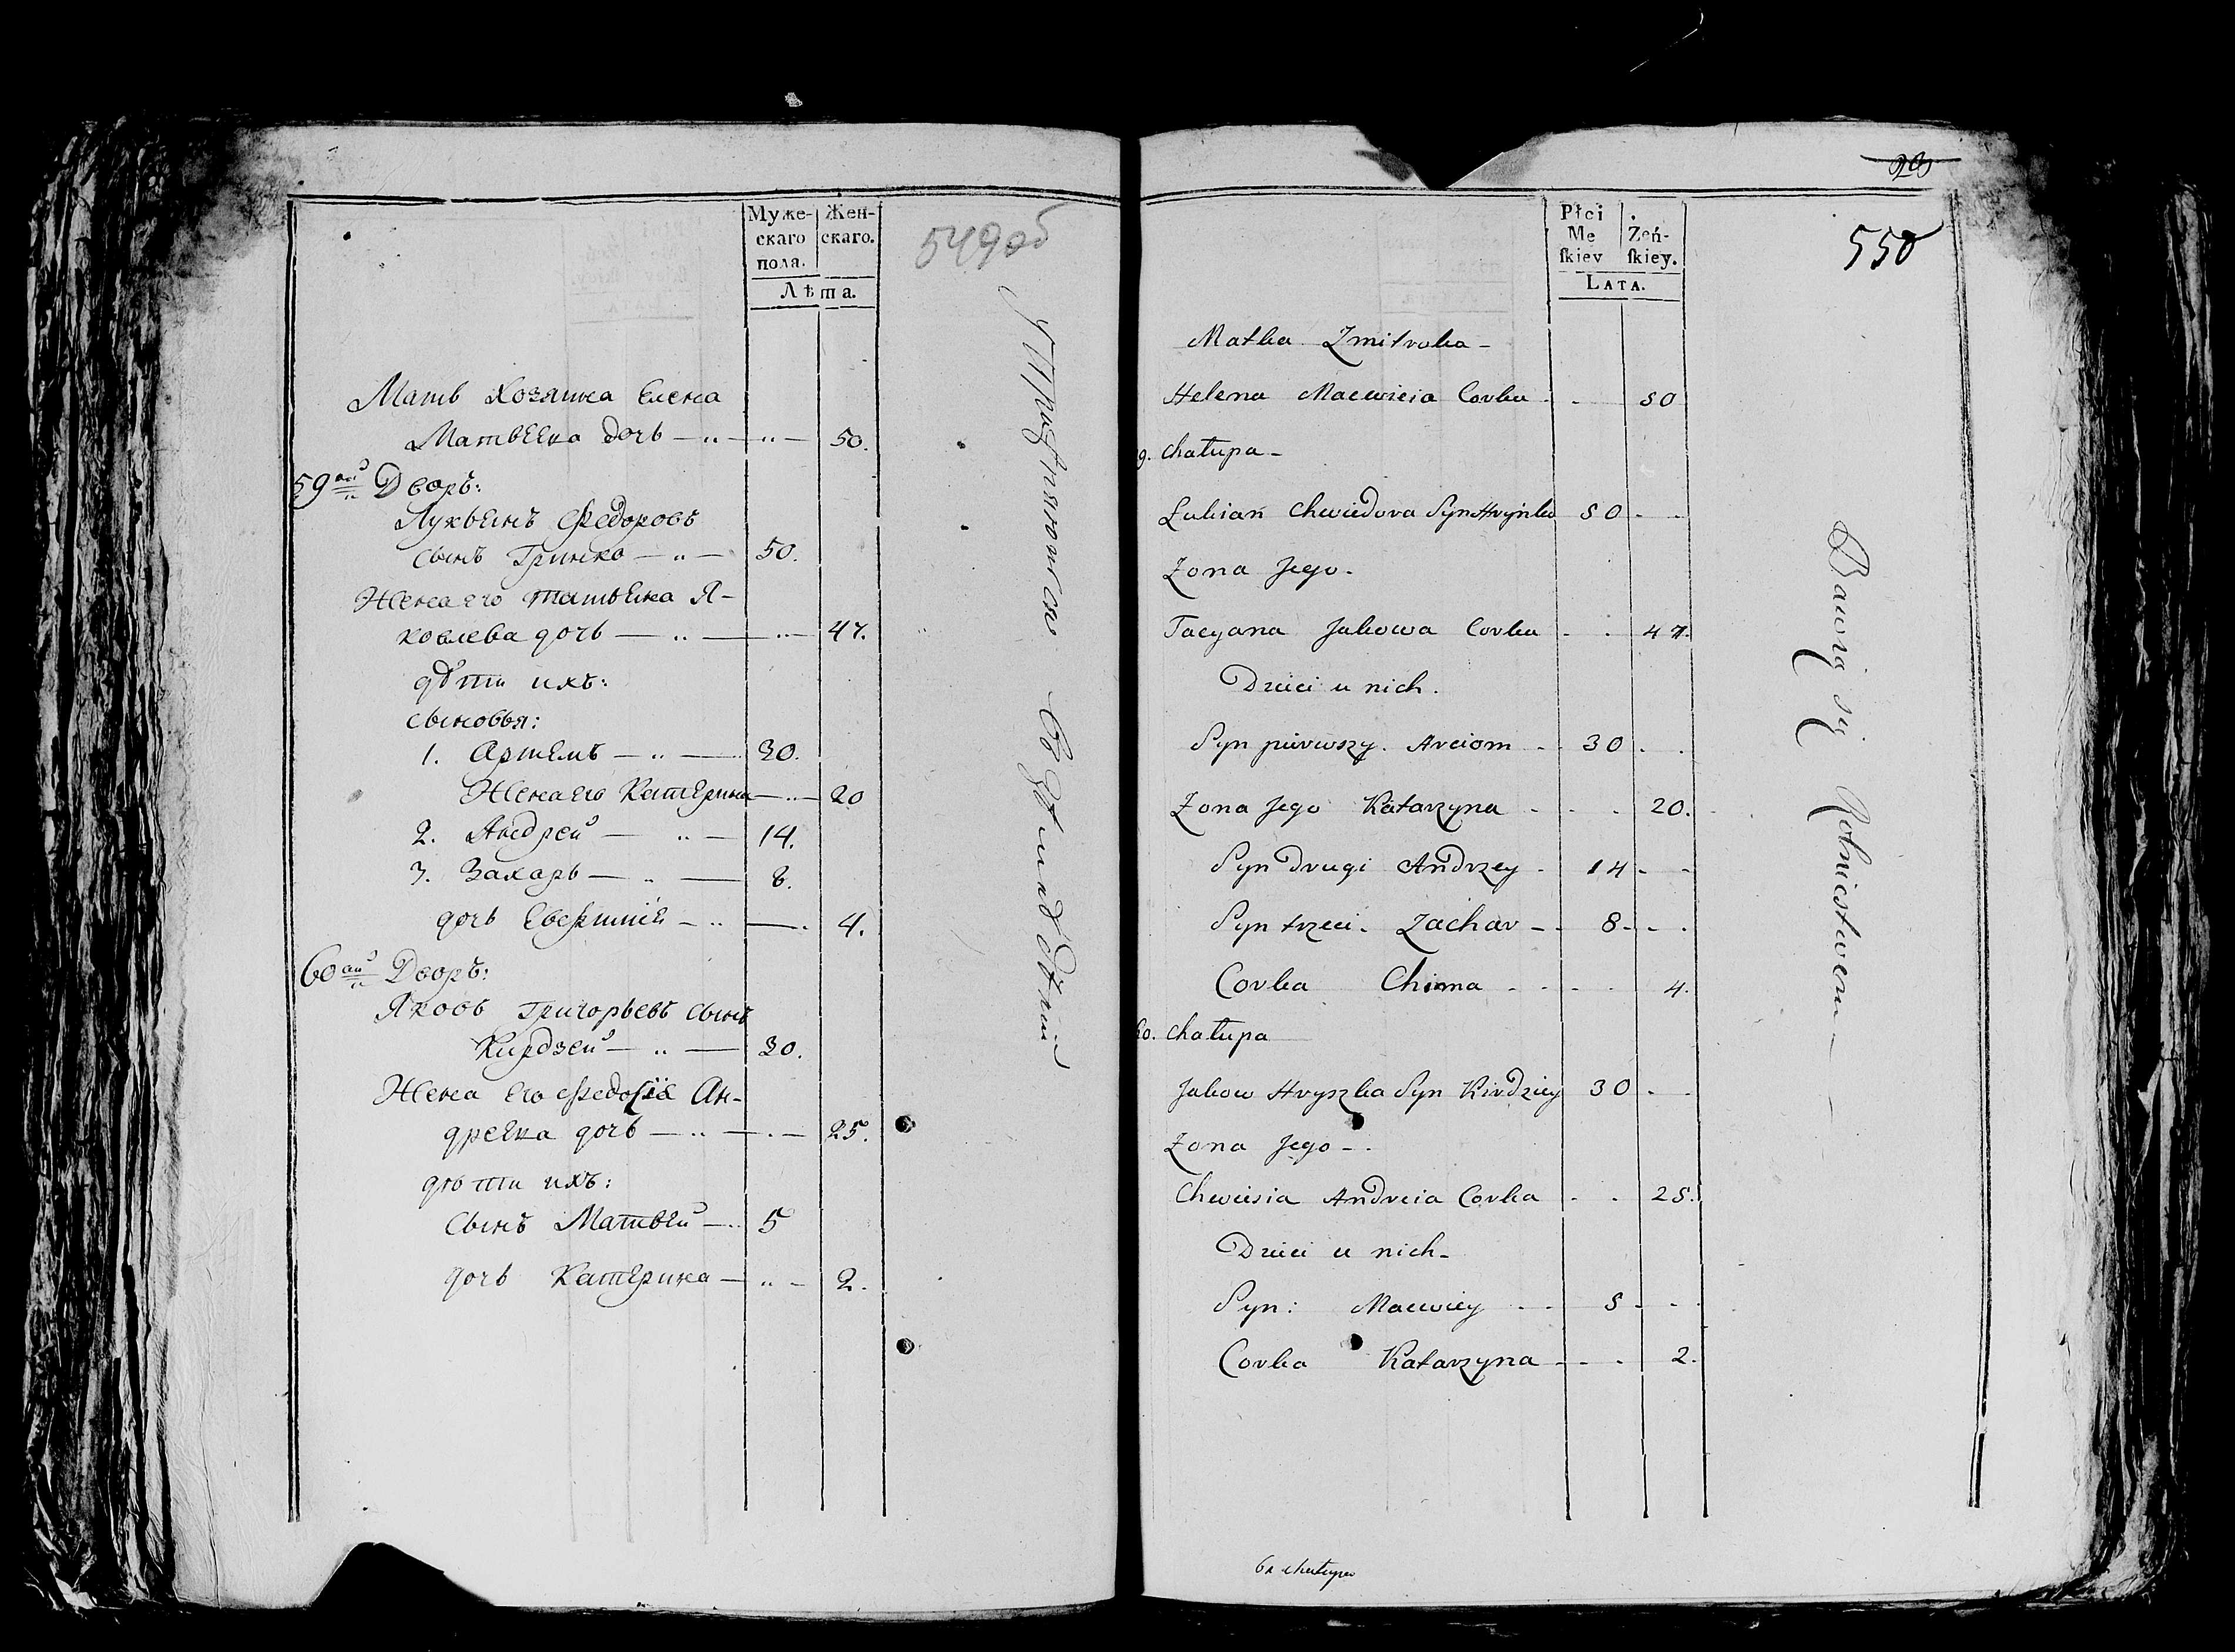 Муже-
скаго
пола.
Жен-
скаго.
Лѣта.
549об
Мать Хозяина Елена
Матвеева дочь — „ — „ — 50.
59ай Дворъ:
Лукьянъ Федоровъ
сынъ Гринко — „ — 50.
Жена его Татьяна Я-
ковлева дочь — „ — „ — 47.
дѣти ихъ:
сыновья:
1. Артемъ — „ — 30.
Жена его Катерина — „ — 20
2. Андрей — „ — 14.
3. Захаръ — „ — 8.
дочь Евфимія — „ — 4.
60ай Дворъ:
Яковъ Григорьевъ сынъ
Кирдзей — „ — 30.
Жена его Федосія Ан-
дреева дочь — „ — 25.
дѣти ихъ:
сынъ Матвей — 5
дочь Катерина — „ — 2.
Упражняются въ земледѣліи
20
550
Płci
Mę
ſkiey
Żeń-
ſkiey.
LATA.
Matka Zmitroka –
Helena Macwieia Corka - 50
9. Chałupa –
Łukian Chwiedora Syn Hrynko 50 - -
Zona Jego -
Tacyana Jakowa Corka - - 47.
Dzieci u nich.
Syn pierwszy. Arciom - - 30 - -
Zona Jego Katarzyna - - - 20.
Syn Drugi Andrzey - 14 - -
Syn trzeci. Zachar - - 8 - -
Corka Chima - - - 4.
60. Chałupa
Jakow Hryszka Syn Kirdziey 30 - -
Zona Jego - .
Chwiesia Andreia Corka - - 25.
Dzieci u nich -
Syn: Macwiey - - 5 - -
Corka Katarzyna - - - 2.
Bawią się Rolnictwem —